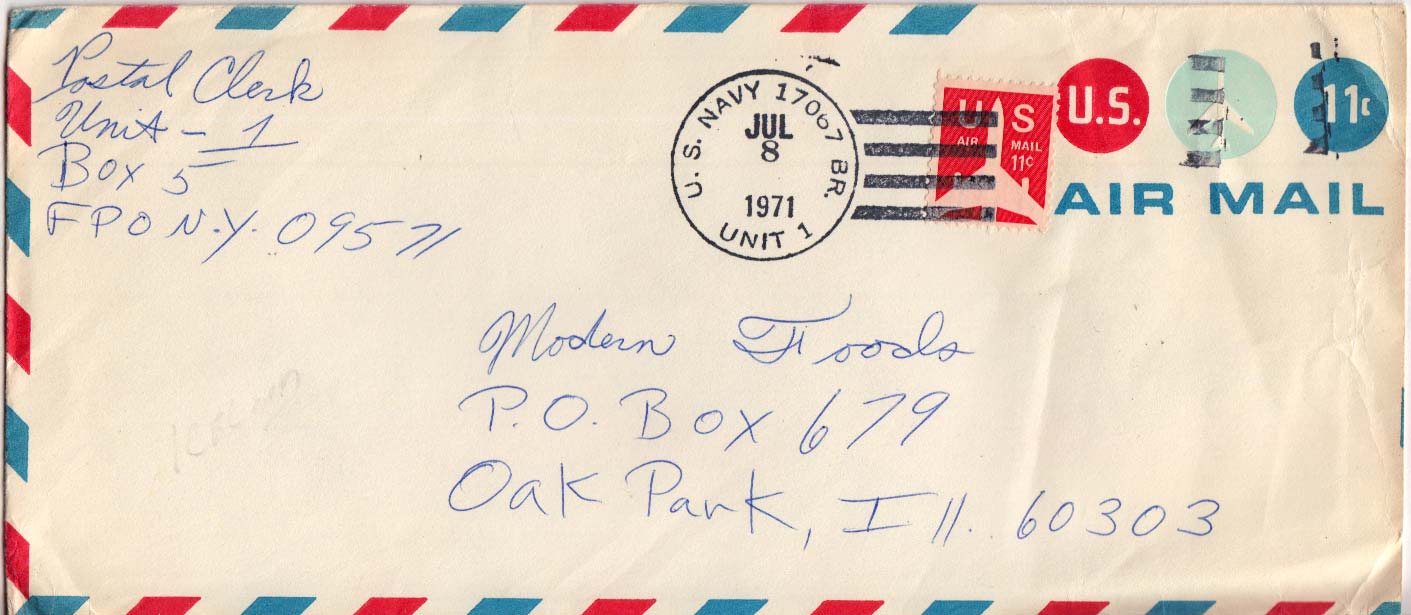 Postal Clerk
Unit - 1
Box 5
FPO N.Y. 09571
U. S. NAVY 17067 BR.
JUL
8
1971
UNIT 1
U S
AIR MAIL
11¢
U.S.
11¢
AIR MAIL
Modern Foods
P.O. Box 679
Oak Park, Ill. 60303